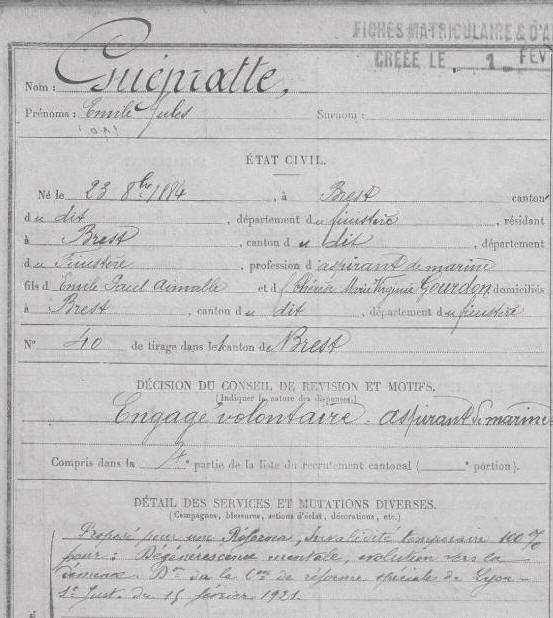 FICHES MATRICULAIRE & D'A
CRÉÉE LE 1 FÉV
Nom : Guépratte,
Prénoms : Emile Jules Surnom :
ÉTAT CIVIL.
Né le 23 8bre 1884, à Brest canton
du dit, département du finistère, résidant
à Brest, canton du dit, département
du Finistère, profession d'aspirant de marine
fils d Emile Paul Armalle et d Marie Virginie Gourdon domiciliés
à Brest, canton du dit, département du finistère
N° 40 de tirage dans le canton de Brest
DÉCISION DU CONSEIL DE REVISION ET MOTIFS.
(Indiquer la nature des dispenses.)
Engagé volontaire - aspirant de marine
Compris dans la partie de la liste du recrutement cantonal ( e portion).
DÉTAIL DES SERVICES ET MUTATIONS DIVERSES.
(Campagnes, blessures, actions d'éclat, décorations, etc.)
Proposé pour une Réforme, Invalidité temporaire 100%
pour : Dégénérescence mentale, évolution vers la
démence. Don de la Con de réforme spéciale de Lyon -
St Just. du 15 février 1921.